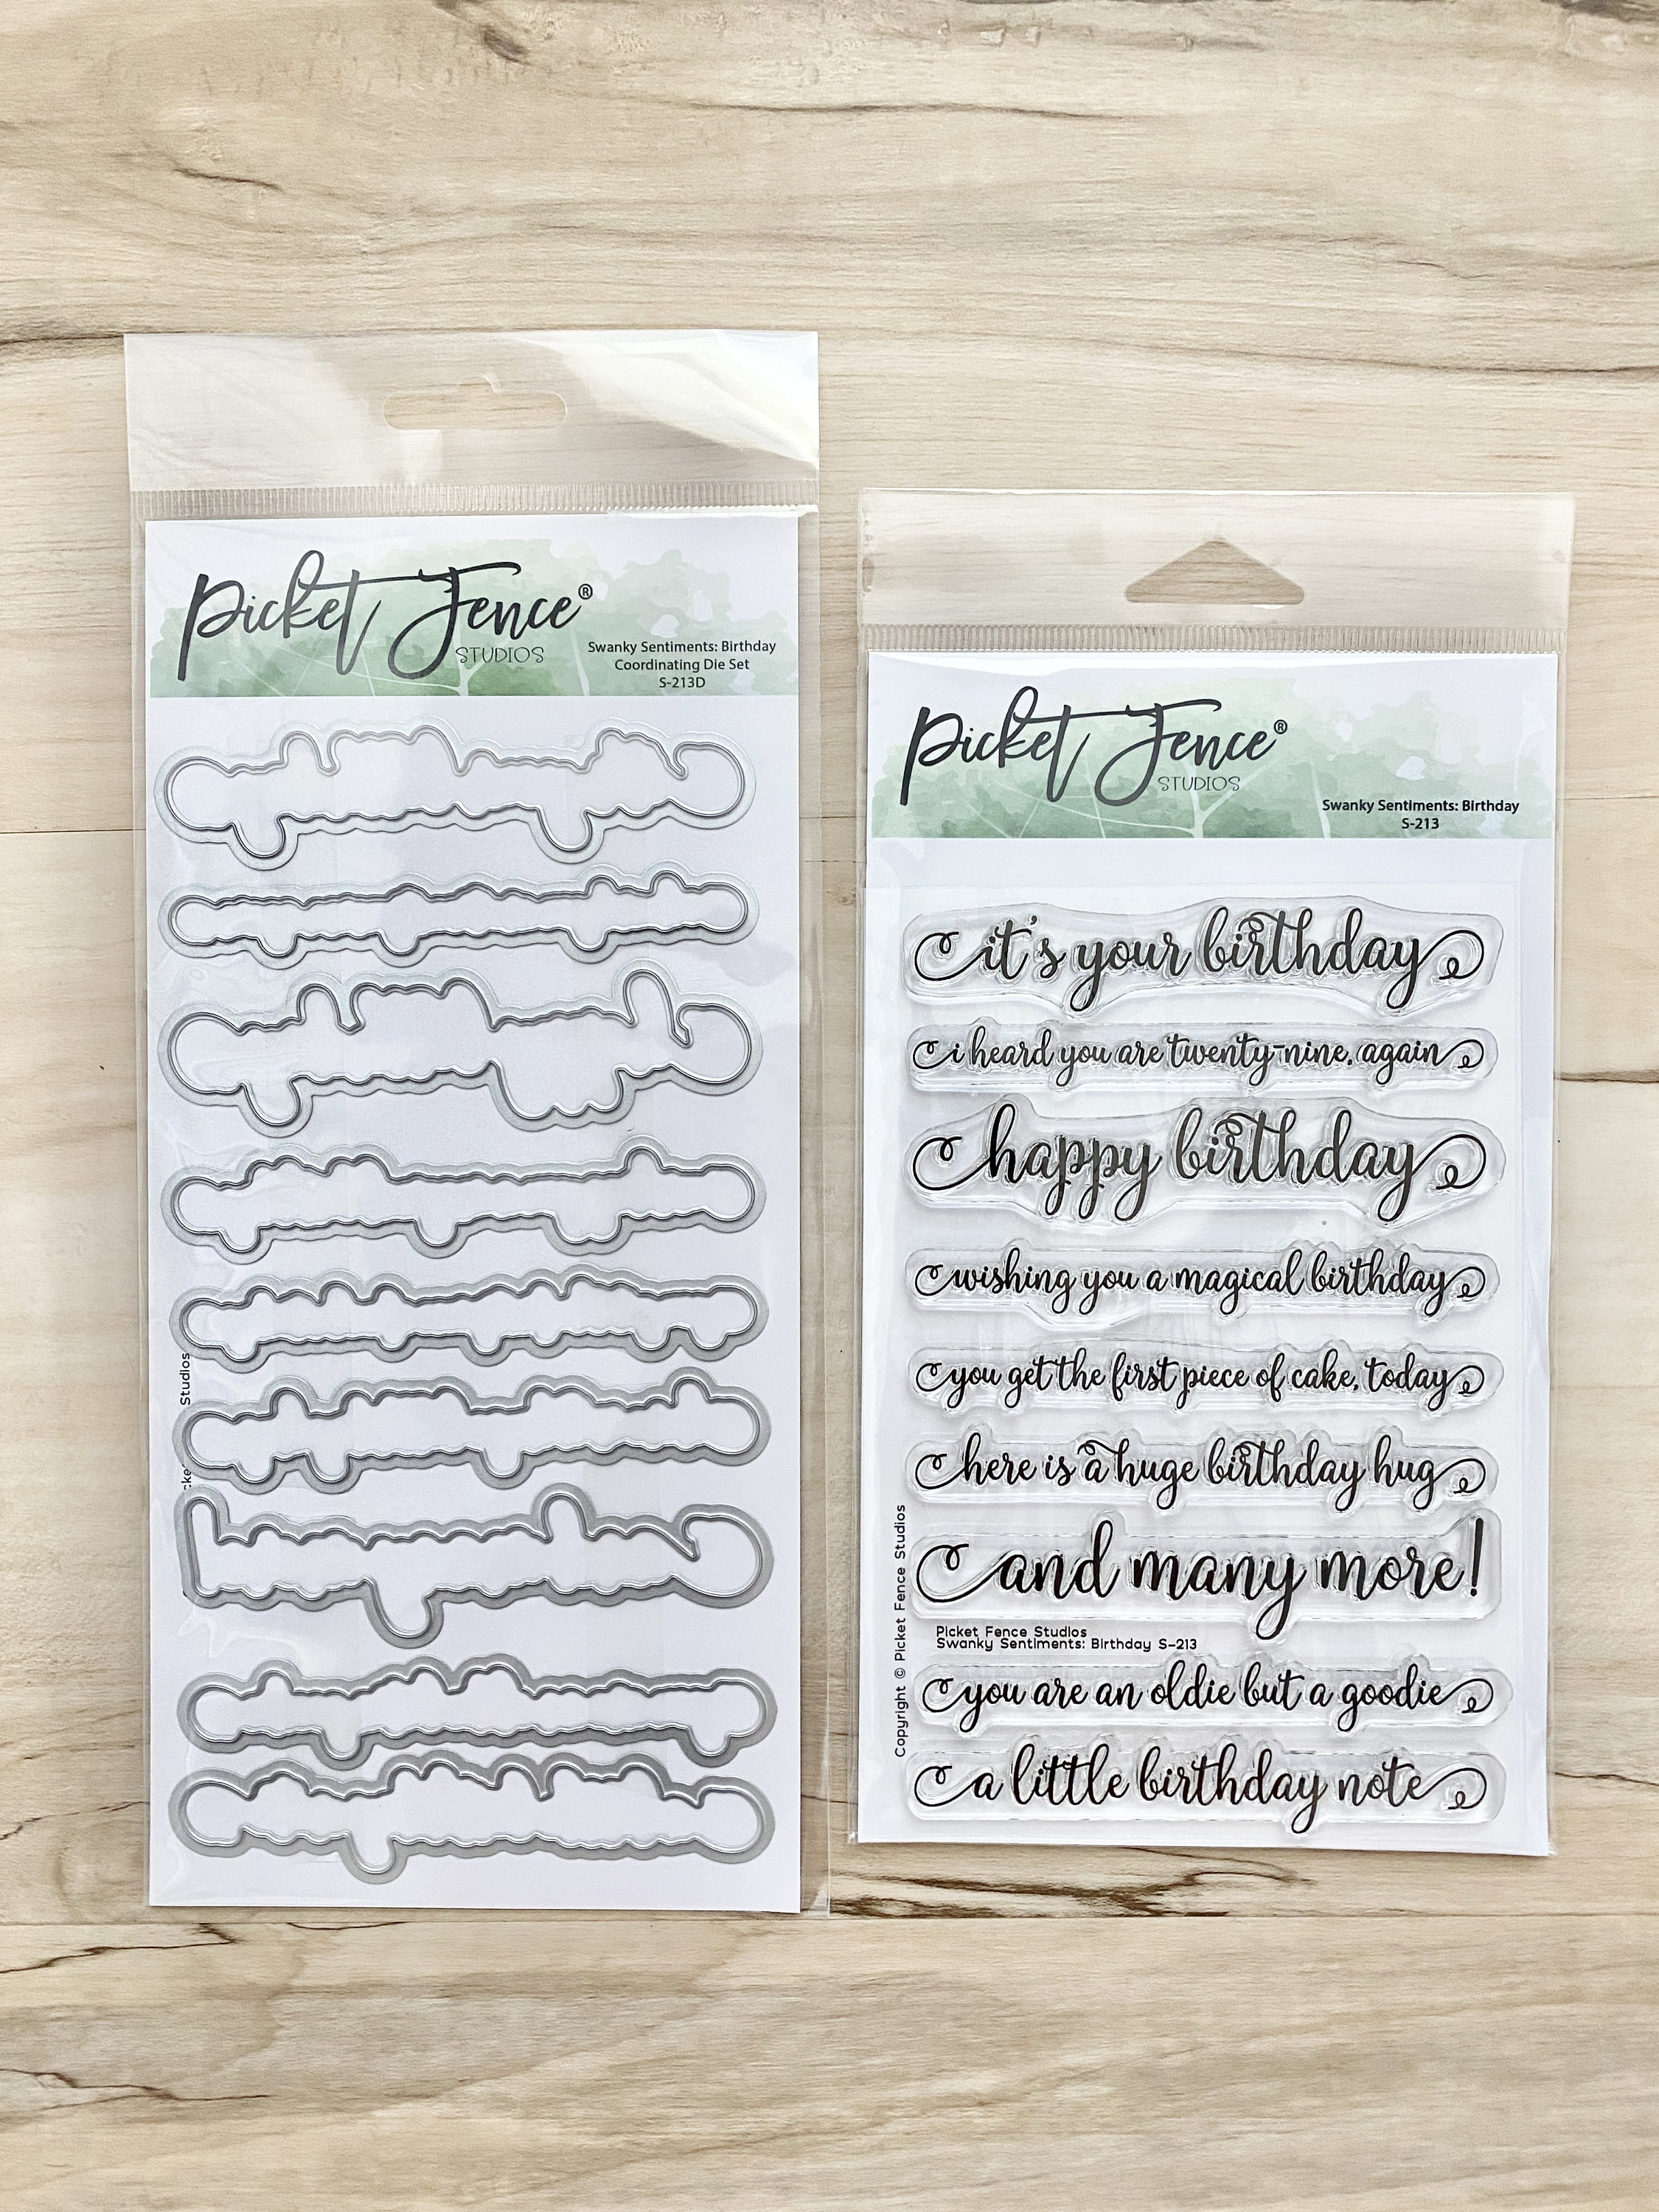 Picket Fence®
STUDIOS
Swanky Sentiments: Birthday
Coordinating Die Set
S-213D
Studios
Picket Fence®
STUDIOS
Swanky Sentiments: Birthday
S-213
it's your birthday
i heard you are twenty-nine, again
happy birthday
wishing you a magical birthday
you get the first piece of cake, today
here is a huge birthday hug
and many more!
Picket Fence Studios
Swanky Sentiments: Birthday S-213
you are an oldie but a goodie
a little birthday note
Copyright © Picket Fence Studios